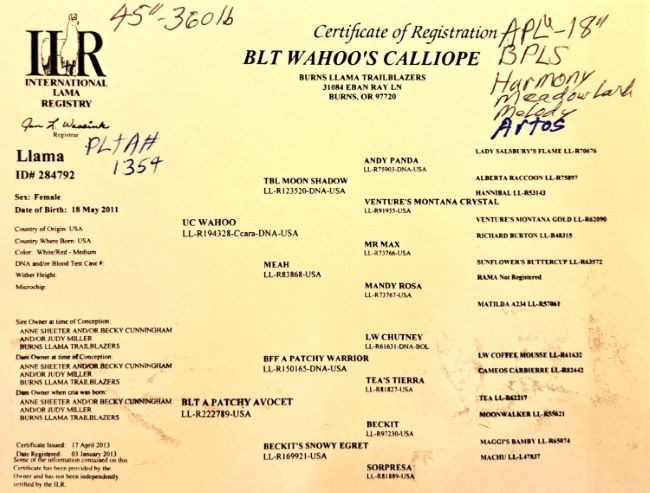 45"-360lb
ILR
INTERNATIONAL
LAMA
REGISTRY
Registrar
PLTA#
1354
Certificate of Registration
BLT WAHOO'S CALLIOPE
BURNS LLAMA TRAILBLAZERS
31084 EBAN RAY LN
BURNS, OR 97720
APL"-18"
BPLS
Harmony
Meadowlark
Melody
Artos
Llama
ID# 284792
Sex: Female
Date of Birth: 18 May 2011
Country of Origin: USA
Country Where Born: USA
Color: White/Red - Medium
DNA and/or Blood Test Case #:
Wither Height:
Microchip:
Sire Owner at time of Conception:
ANNE SHEETER AND/OR BECKY CUNNINGHAM
AND/OR JUDY MILLER
BURNS LLAMA TRAILBLAZERS
Dam Owner at time of Conception:
ANNE SHEETER AND/OR BECKY CUNNINGHAM
AND/OR JUDY MILLER
BURNS LLAMA TRAILBLAZERS
Dam Owner when cria was born:
ANNE SHEETER AND/OR BECKY CUNNINGHAM
AND/OR JUDY MILLER
BURNS LLAMA TRAILBLAZERS
Certificate Issued: 17 April 2013
Date Registered: 03 January 2013
Some of the information contained on this
Certificate has been provided by the
Owner and has not been independently
verified by the ILR.
UC WAHOO
LL-R194328-Ccara-DNA-USA
BLT A PATCHY AVOCET
LL-R222789-USA
TBL MOON SHADOW
LL-R123520-DNA-USA
MEAH
LL-R83868-USA
BFF A PATCHY WARRIOR
LL-R150165-DNA-USA
BECKIT'S SNOWY EGRET
LL-R169921-USA
ANDY PANDA
LL-R75903-DNA-USA
VENTURE'S MONTANA CRYSTAL
LL-R91955-USA
MR MAX
LL-R73766-USA
MANDY ROSA
LL-R73767-USA
LW CHUTNEY
LL-R61631-DNA-BOL
TEA'S TIERRA
LL-R81827-USA
BECKIT
LL-R97230-USA
SORPRESA
LL-R81889-USA
LADY SALSBURY'S FLAME LL-R70676
ALBERTA RACCOON LL-R75897
HANNIBAL LL-R53143
VENTURE'S MONTANA GOLD LL-R62090
RICHARD BURTON LL-R48315
SUNFLOWER'S BUTTERCUP LL-R63572
RAMA Not Registered
MATILDA A234 LL-R57061
LW COFFEE MOUSSE LL-R61632
CAMEOS CARBIERRE LL-R82442
TEA LL-R62217
MOONWALKER LL-R35621
MAGGI'S BAMBY LL-R65074
MACHU LL-L47837